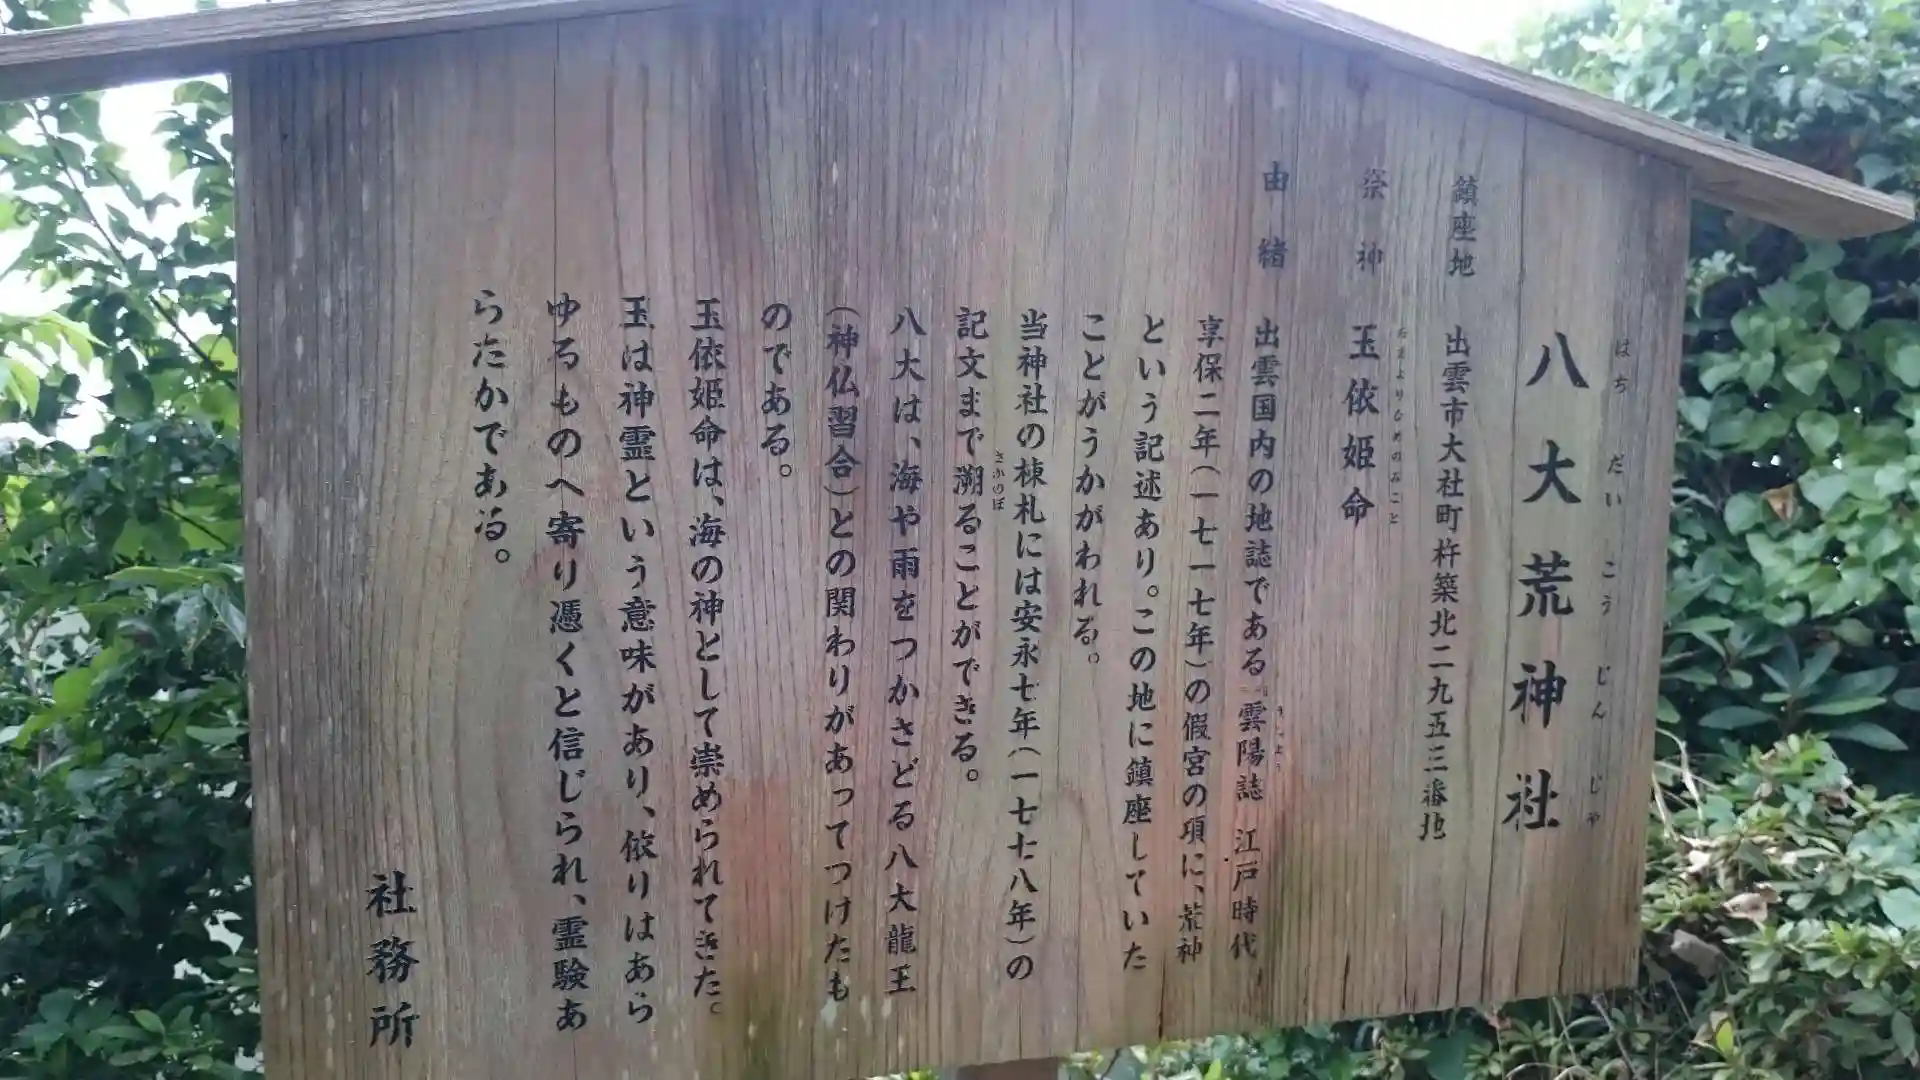 はちだいこうじんじゃ
八大荒神社
鎮座地 出雲市大社町杵築北二九五三番地
たまよりひめのみこと
祭神 玉依姫命
由緒 出雲国内の地誌である「雲陽誌」江戸時代
享保二年(一七一七年)の假宮の項に、荒神
という記述あり。この地に鎮座していた
ことがうかがわれる。
当神社の棟札には安永七年(一七七八年)の
さかのぼ
記文まで溯ることができる。
八大は、海や雨をつかさどる八大龍王
(神仏習合)との関わりがあってつけたも
のである。
玉依姫命は、海の神として崇められてきた。
玉は神霊という意味があり、依りはあら
ゆるものへ寄り憑くと信じられ、霊験あ
らたかである。
社務所